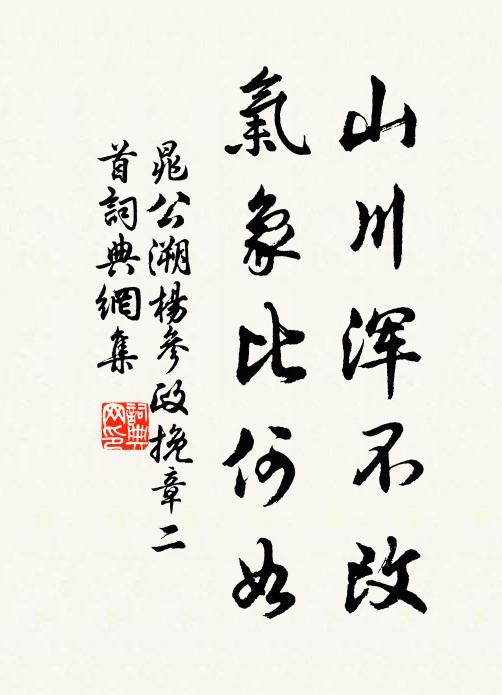 山川浑不改
氣象比何如
晁公溯楊參政挽章二
首詞典網集
詞典
网印